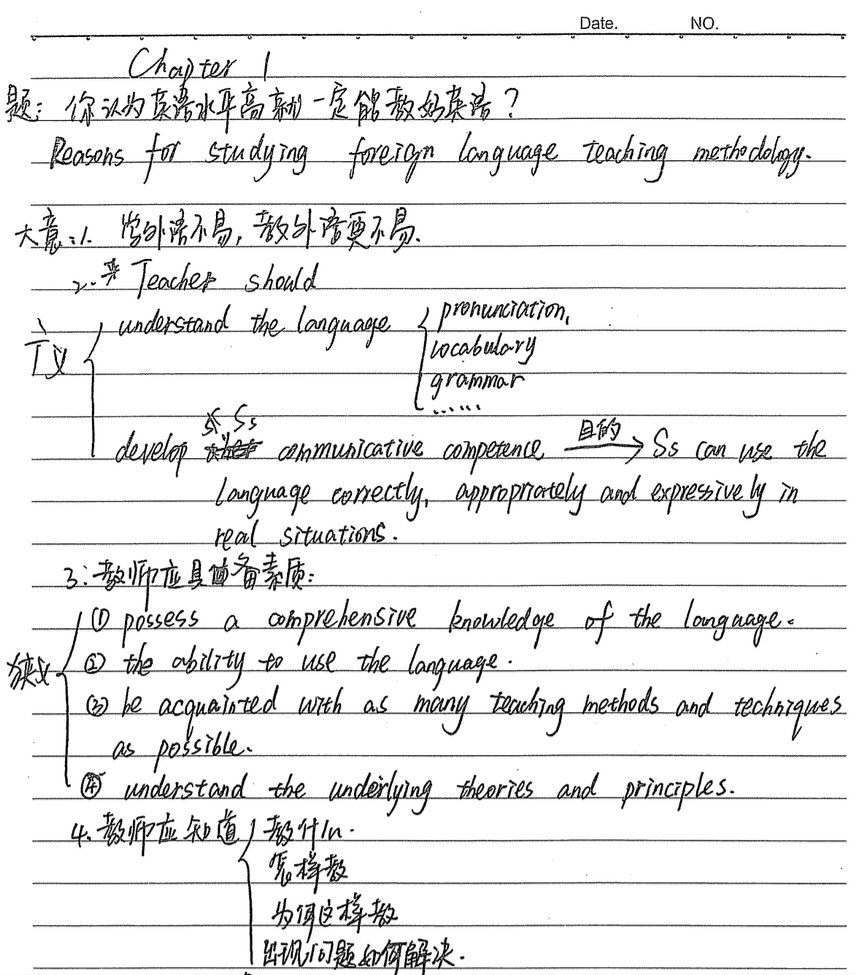 Date. NO.
Chapter 1
题: 你认为英语水平高就一定能教好英语?
Reasons for studying foreign language teaching methodology.
大意:1. 学外语不易,教外语更不易.
2. Teacher should
广义 { understand the language { pronunciation,
vocabulary
grammar
......
develop Ss communicative competence 目的→ Ss can use the
language correctly, appropriately and expressively in
real situations.
3: 教师应具备素质:
狭义 { ① possess a comprehensive knowledge of the language.
② the ability to use the language.
③ be acquainted with as many teaching methods and techniques
as possible.
④ understand the underlying theories and principles.
4. 教师应知道 { 教什么.
怎样教
为何这样教
出现问题如何解决.